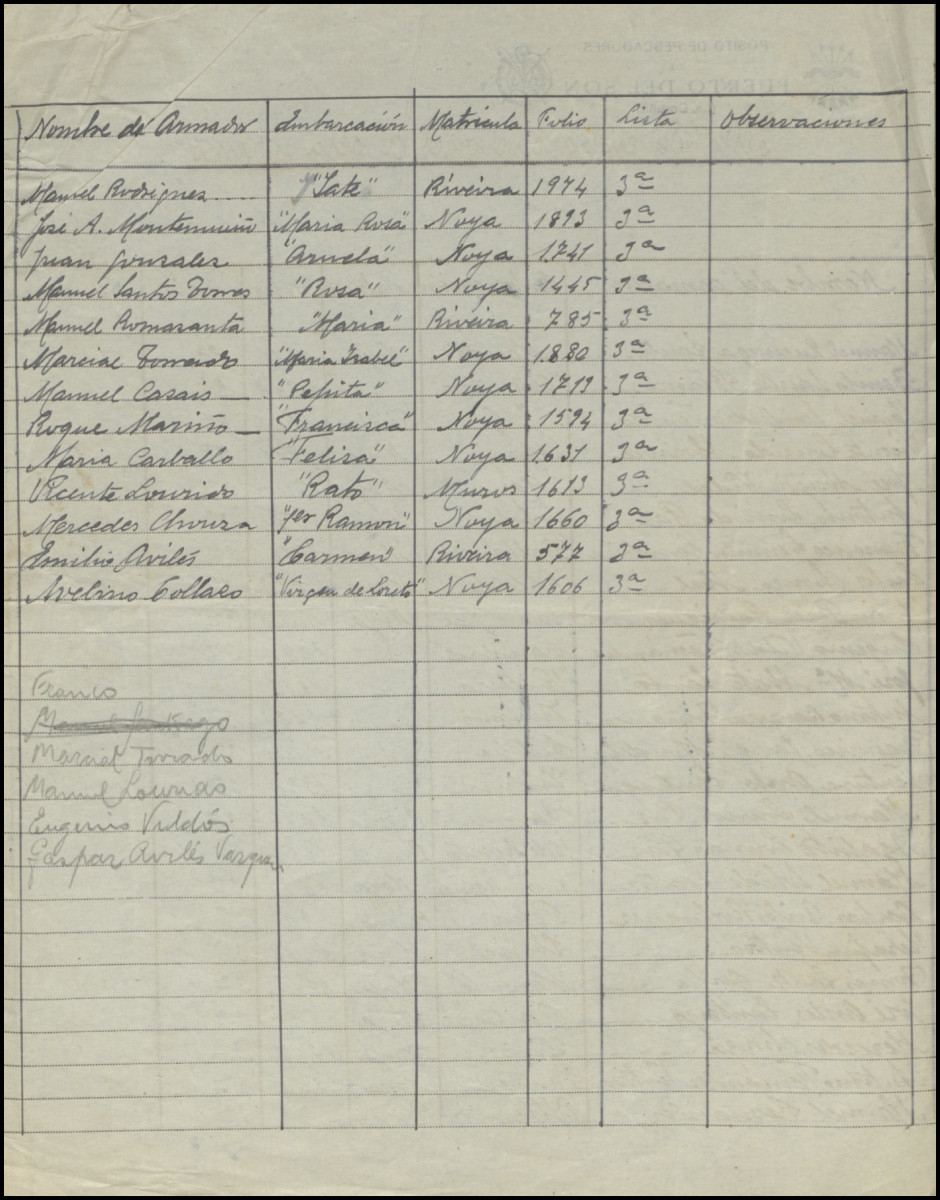 Nombre del Armador Embarcación Matrícula Folio Lista Observaciones
Manuel Rodrigues..... Riveira 1974 3ª
José A. Montemuiño "Maria Rosa" Noya 1893 3ª
Juan Gonzales Noya 1741 3ª
Manuel Santos Torres "Rosa" Noya 1445 3ª
Manuel Romasanta "Maria" Riveira 785 3ª
Marcial Torrado "Maria Isabel" Noya 1880 3ª
Manuel Casais — "Pepita" Noya 1719 3ª
Roque Mariño — "Francisca" Noya 1594 3ª
Maria Carballo "Felisa" Noya 1631 3ª
Vicente Lourido "Rato" Muros 1613 3ª
Mercedes Chouza Ramon" Noya 1660 3ª
Emilio Avilés "Carmen" Riveira 577 3ª
Avelino Collazo "Virgen de Loreto" Noya 1606 3ª
Franco
Manuel Santiago
Marcial Torrado
Manuel Lourido
Eugenio
Gaspar Avilés